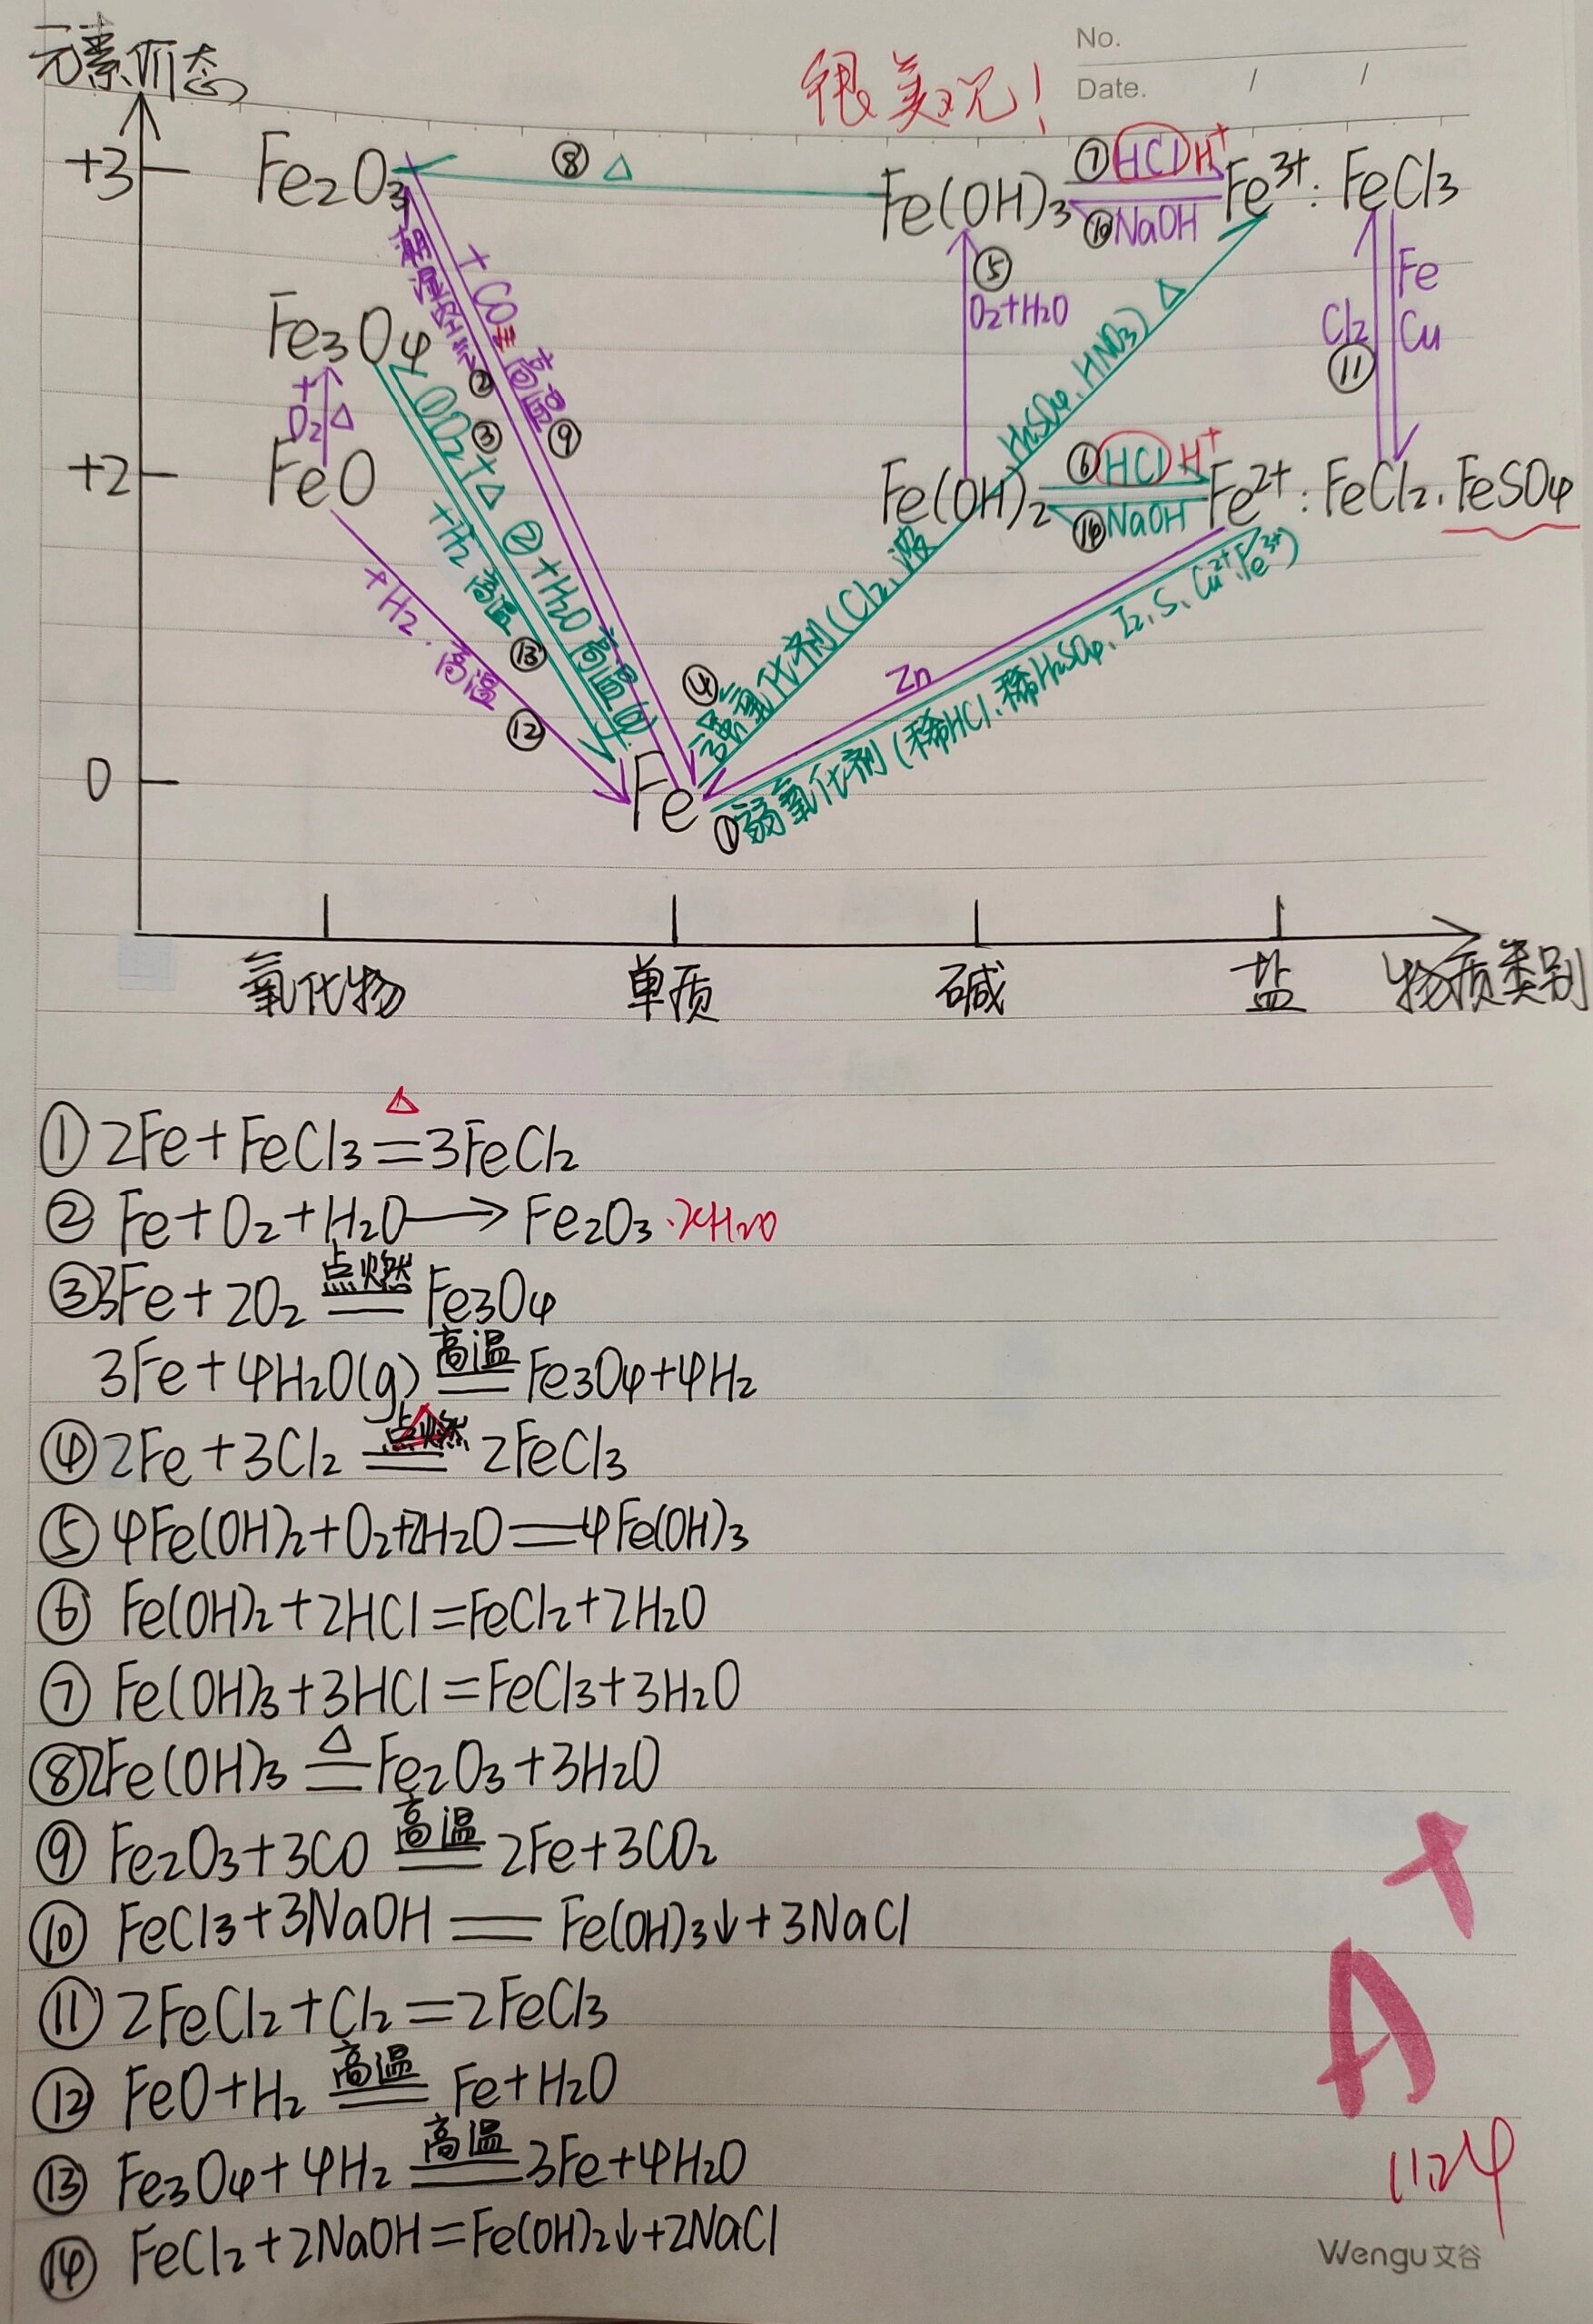 No.
Date. / /
很美观!
元素价态
+3
Fe₂O₃
⑧ △
Fe(OH)₃
⑦ HCl H⁺
⑩ NaOH
Fe³⁺: FeCl₃
+ CO 高温 ⑨
②
⑤ O₂+H₂O
Fe
Cu
Cl₂
⑪
Fe₃O₄
+O₂ △
③
① O₂+△
② +H₂O 高温(g)
+H₂ 高温 ⑬
+2
FeO
Fe(OH)₂
⑥ HCl H⁺
⑭ NaOH
Fe²⁺: FeCl₂、FeSO₄
+H₂、高温 ⑫
④ 强氧化剂(Cl₂、浓H₂SO₄、HNO₃) △
Zn
① 弱氧化剂(稀HCl、稀H₂SO₄、I₂、S、Cu²⁺、Fe³⁺)
0
Fe
氧化物 单质 碱 盐 物质类别
△
① 2Fe+FeCl₃=3FeCl₂
② Fe+O₂+H₂O→Fe₂O₃·xH₂O
③ 3Fe+2O₂ 点燃 Fe₃O₄
3Fe+4H₂O(g) 高温 Fe₃O₄+4H₂
④ 2Fe+3Cl₂ 点燃 △ 2FeCl₃
⑤ 4Fe(OH)₂+O₂+2H₂O=4Fe(OH)₃
⑥ Fe(OH)₂+2HCl=FeCl₂+2H₂O
⑦ Fe(OH)₃+3HCl=FeCl₃+3H₂O
⑧ 2Fe(OH)₃ △ Fe₂O₃+3H₂O
⑨ Fe₂O₃+3CO 高温 2Fe+3CO₂
⑩ FeCl₃+3NaOH=Fe(OH)₃↓+3NaCl
⑪ 2FeCl₂+Cl₂=2FeCl₃
⑫ FeO+H₂ 高温 Fe+H₂O
⑬ Fe₃O₄+4H₂ 高温 3Fe+4H₂O
⑭ FeCl₂+2NaOH=Fe(OH)₂↓+2NaCl
A+
11.24
Wengu文谷